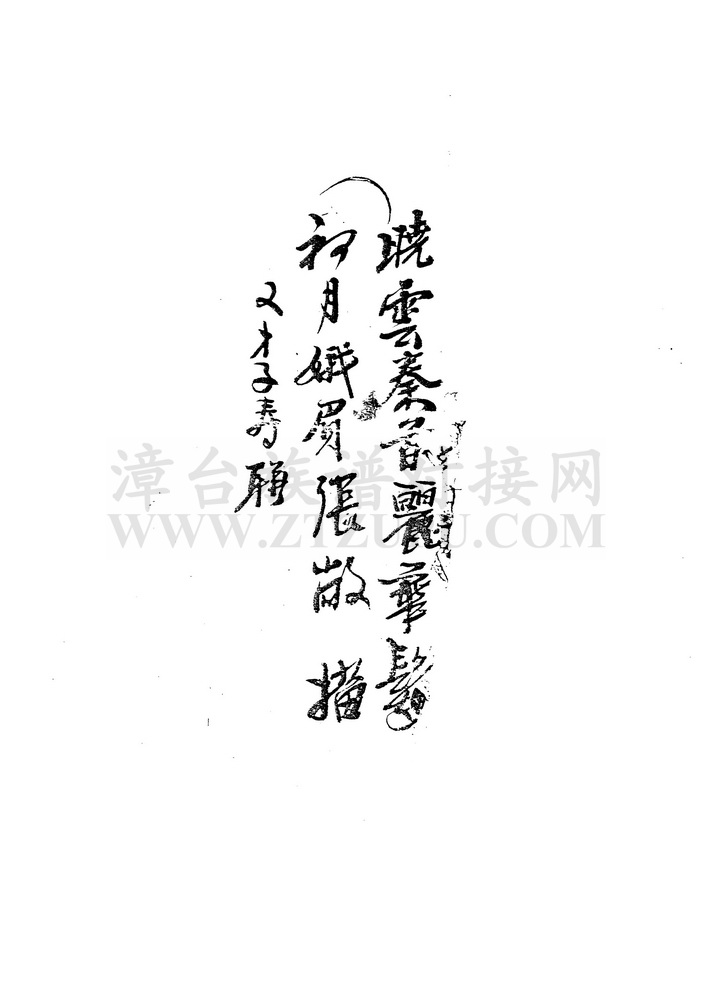 曉雲秦首麗華髻
初月娥眉張敞描
又才子壽聯
漳台族谱对接网
WWW.ZTZUPU.COM